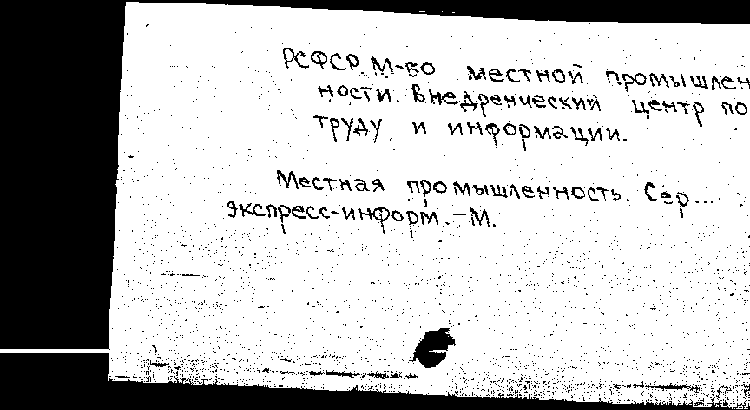 РСФСР. М-во местной промышлен
ности. Внедренческий центр по
труду и информации.
Местная промышленность. Сер...
экспресс-информ. - М.